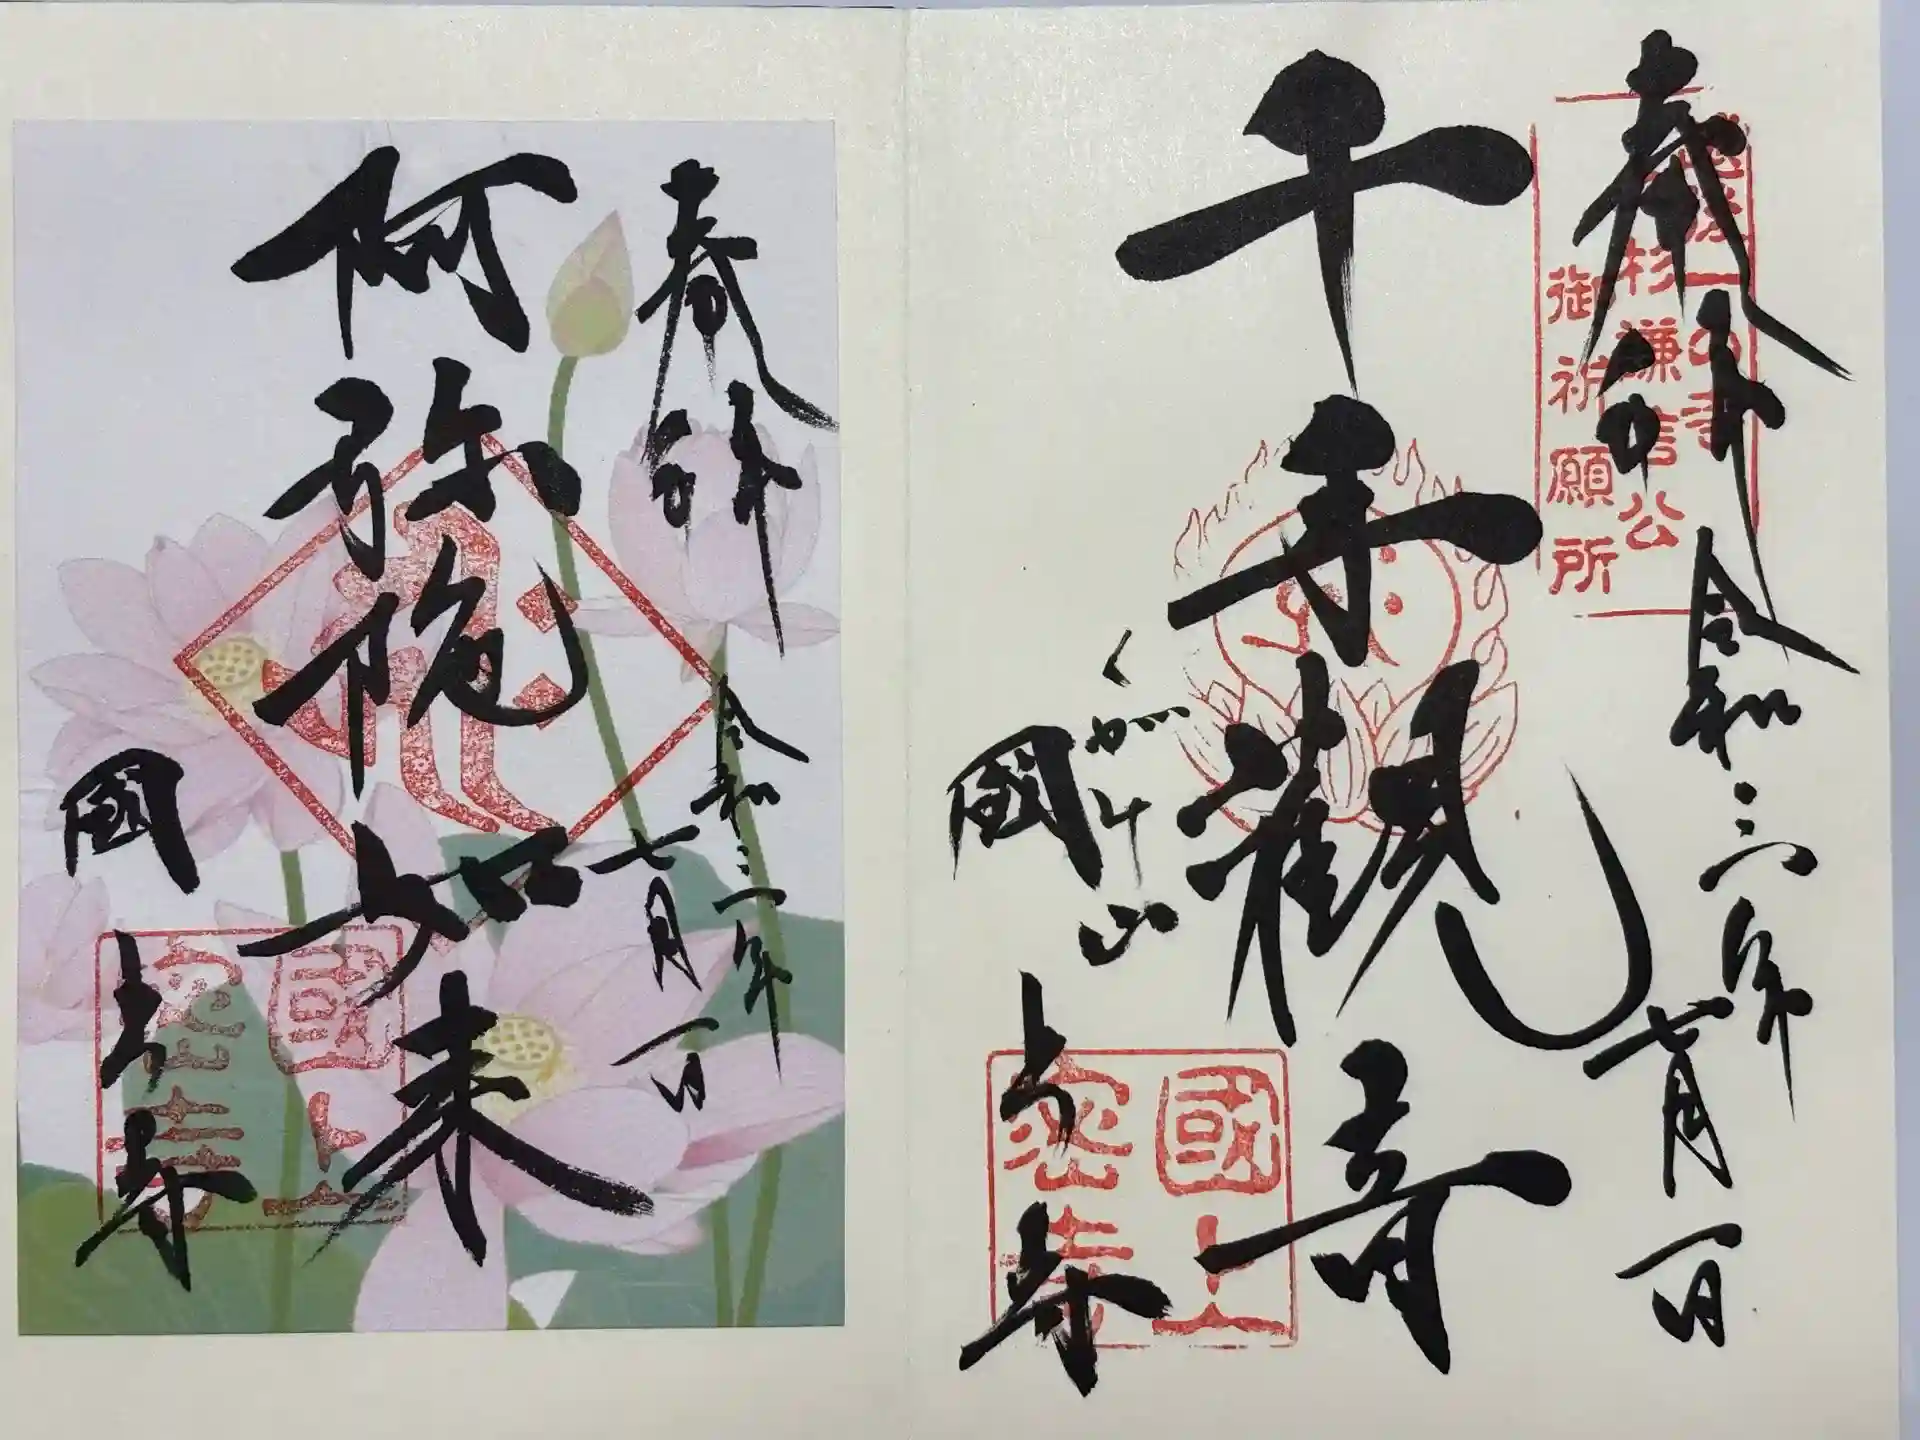 奉拝 令和三年
七月一日
越後一の寺
上杉謙信公
御祈願所
千手観音
くがみ山
國上寺
國上
密寺
奉拝 令和三年
七月一日
阿弥陀如来
國上寺
國上
密寺